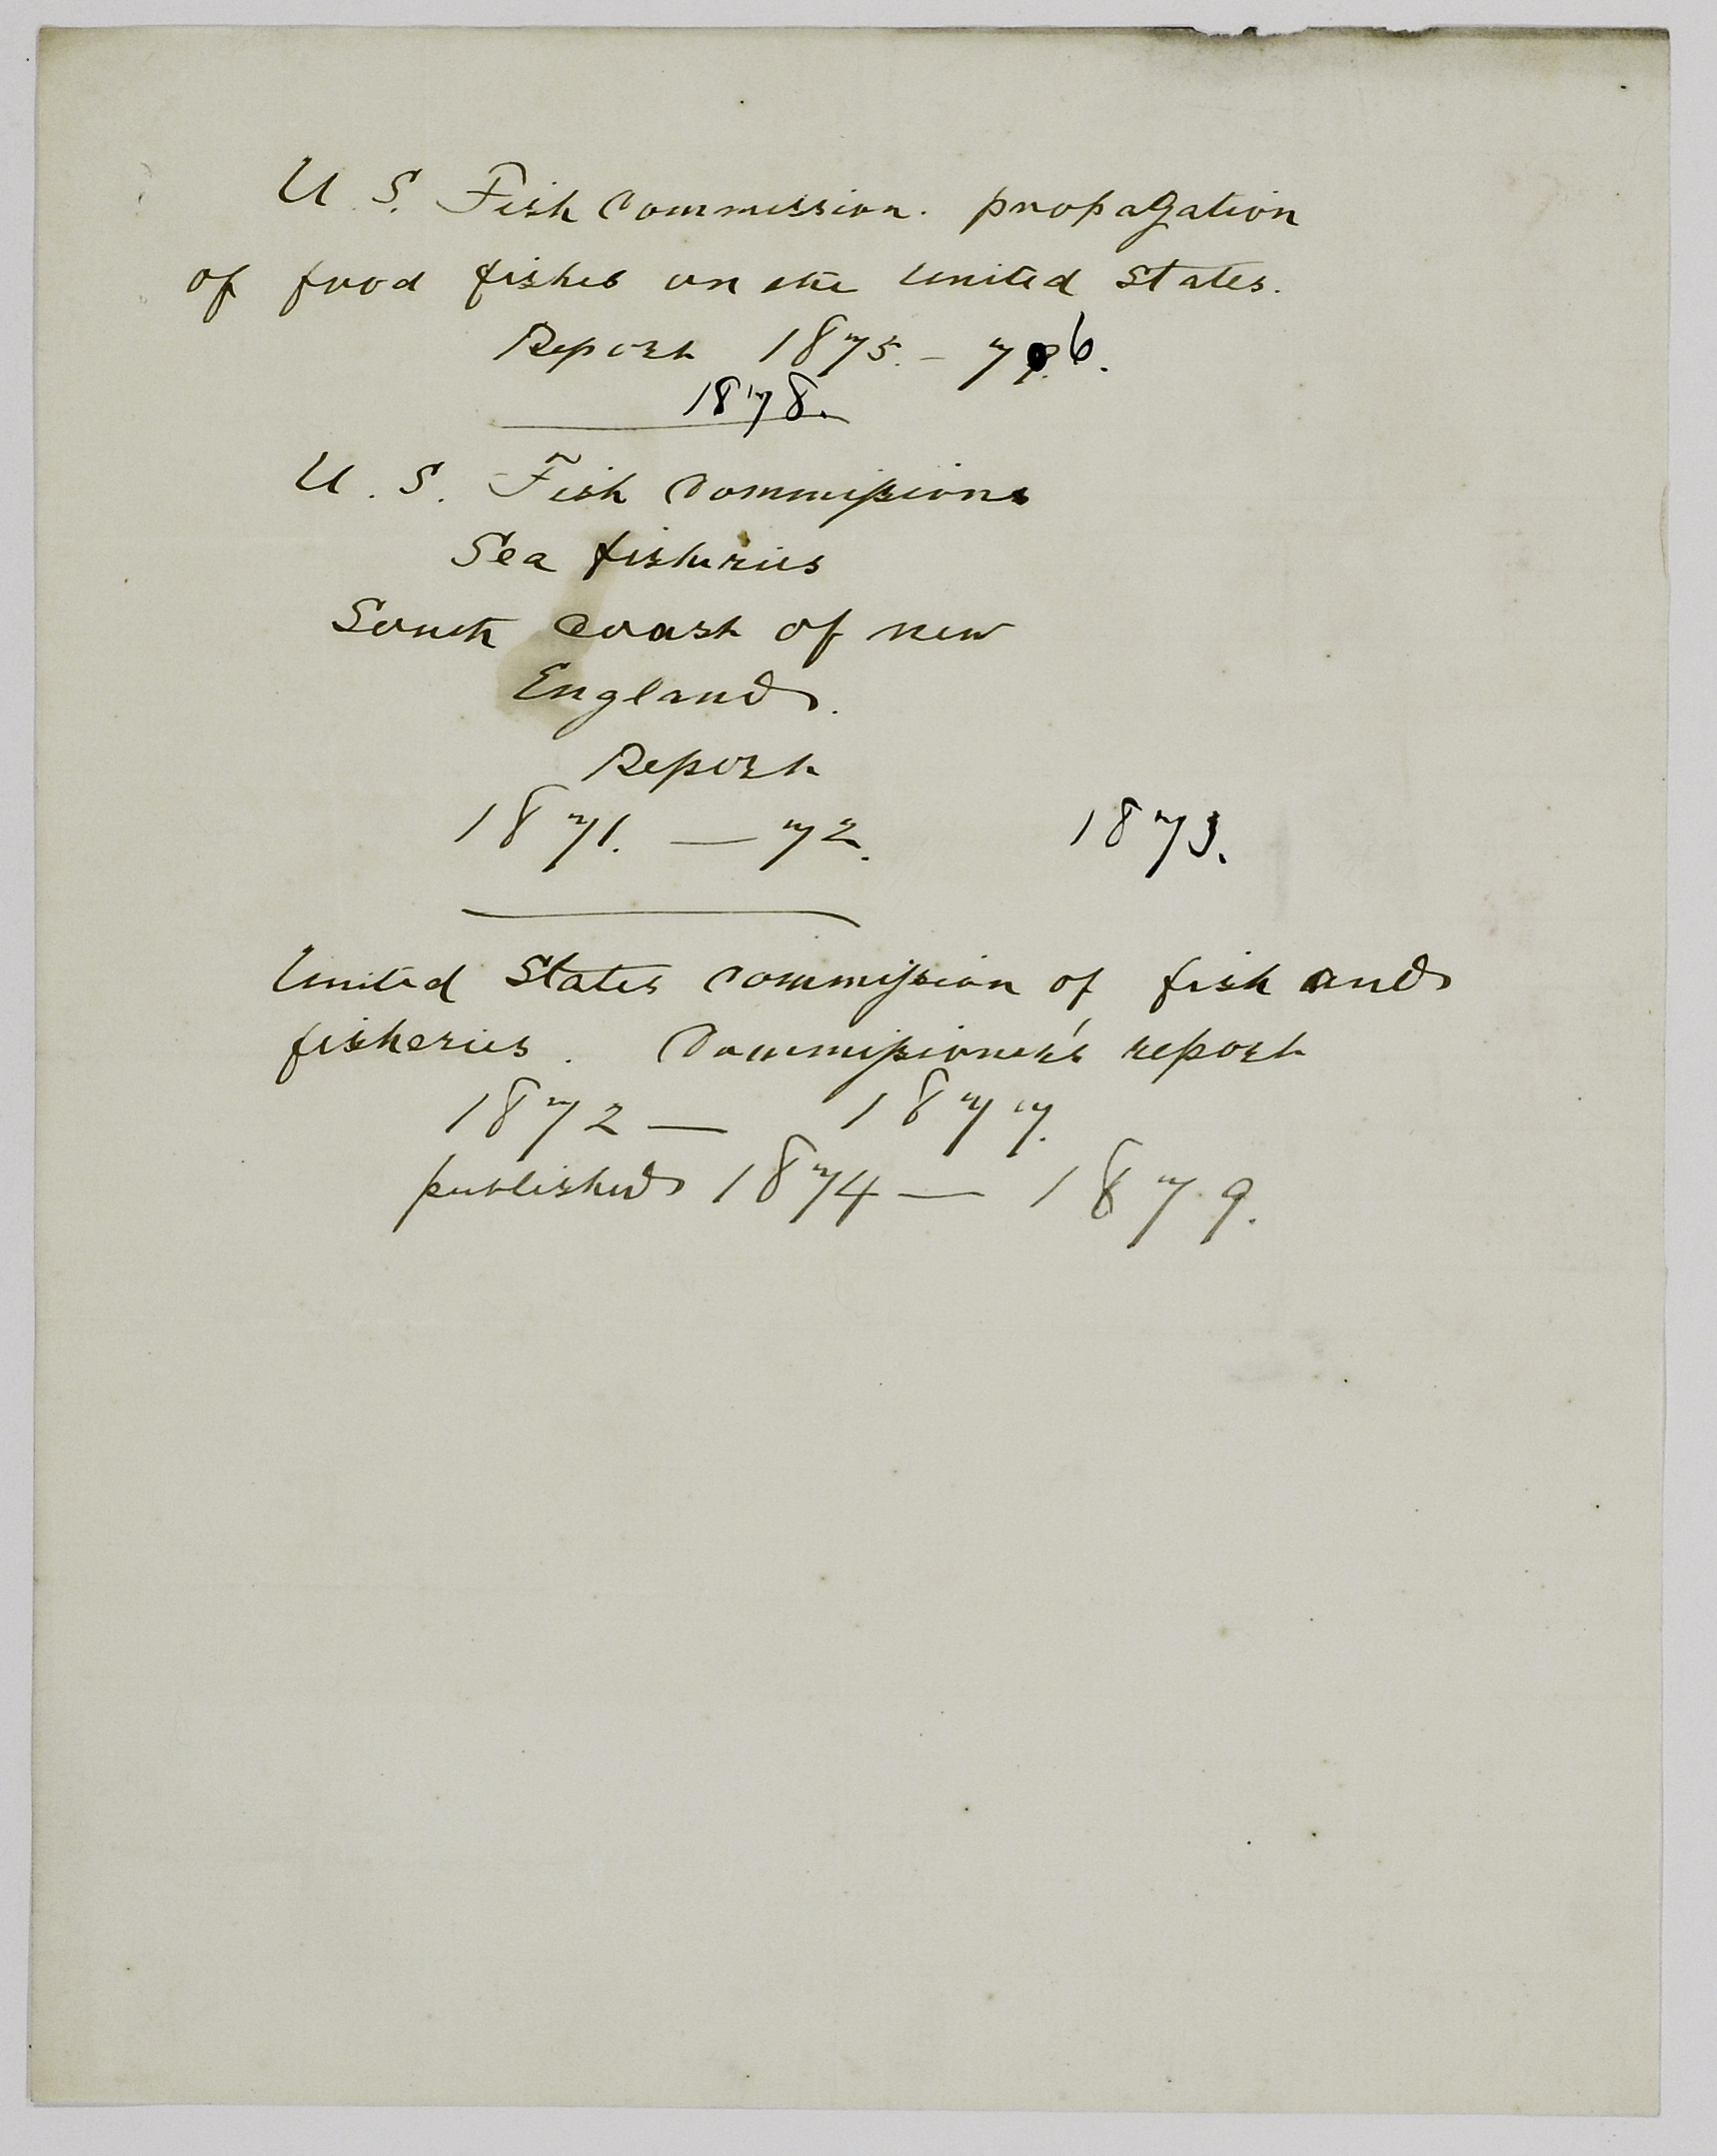 U. S. Fish Commission. propagation
of food fishes on the United States.
Report 1875. – 76.
1878.
U. S. Fish Commissions
Sea fisheries
South Coast of new
England.
Report
1871. — 72. 1873.
United States Commission of fish and
fisheries. Commissioner's report
1872 — 1877.
published 1874 — 1879.